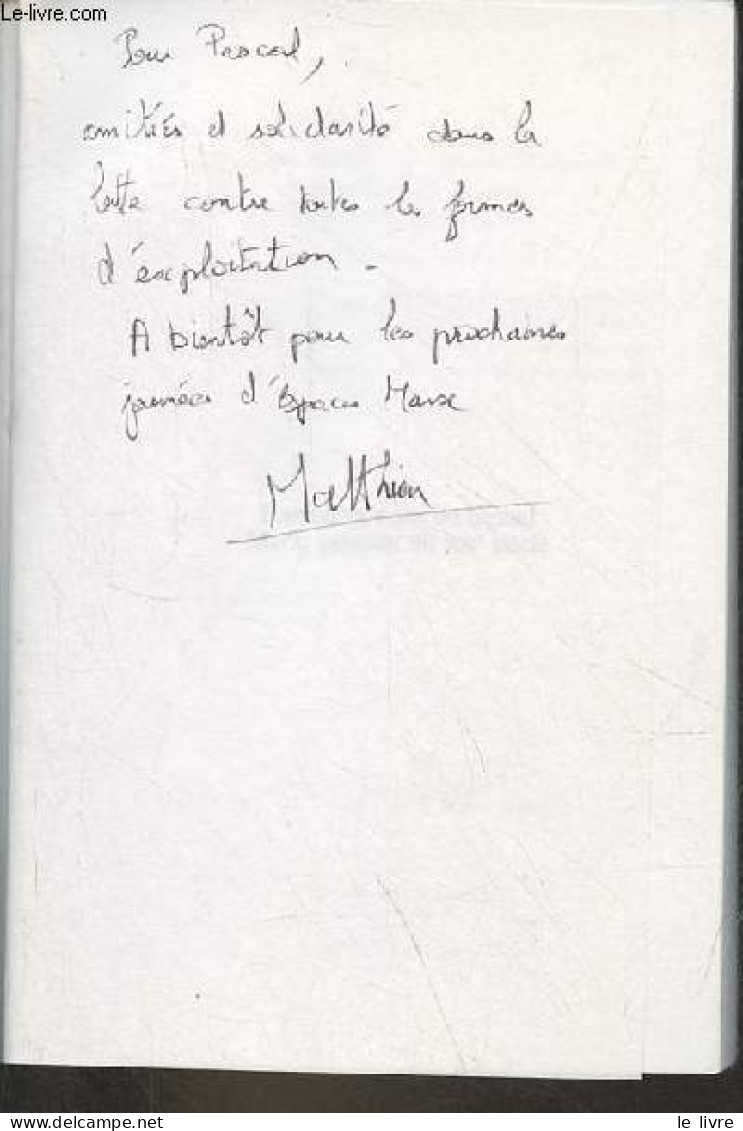 Le-livre.com
Pour Pascal,
amitiés et solidarité dans la
lutte contre toutes les formes
d'exploitation.
A bientôt pour les prochaines
journées d'Espaces Marx
Matthieu
le livre